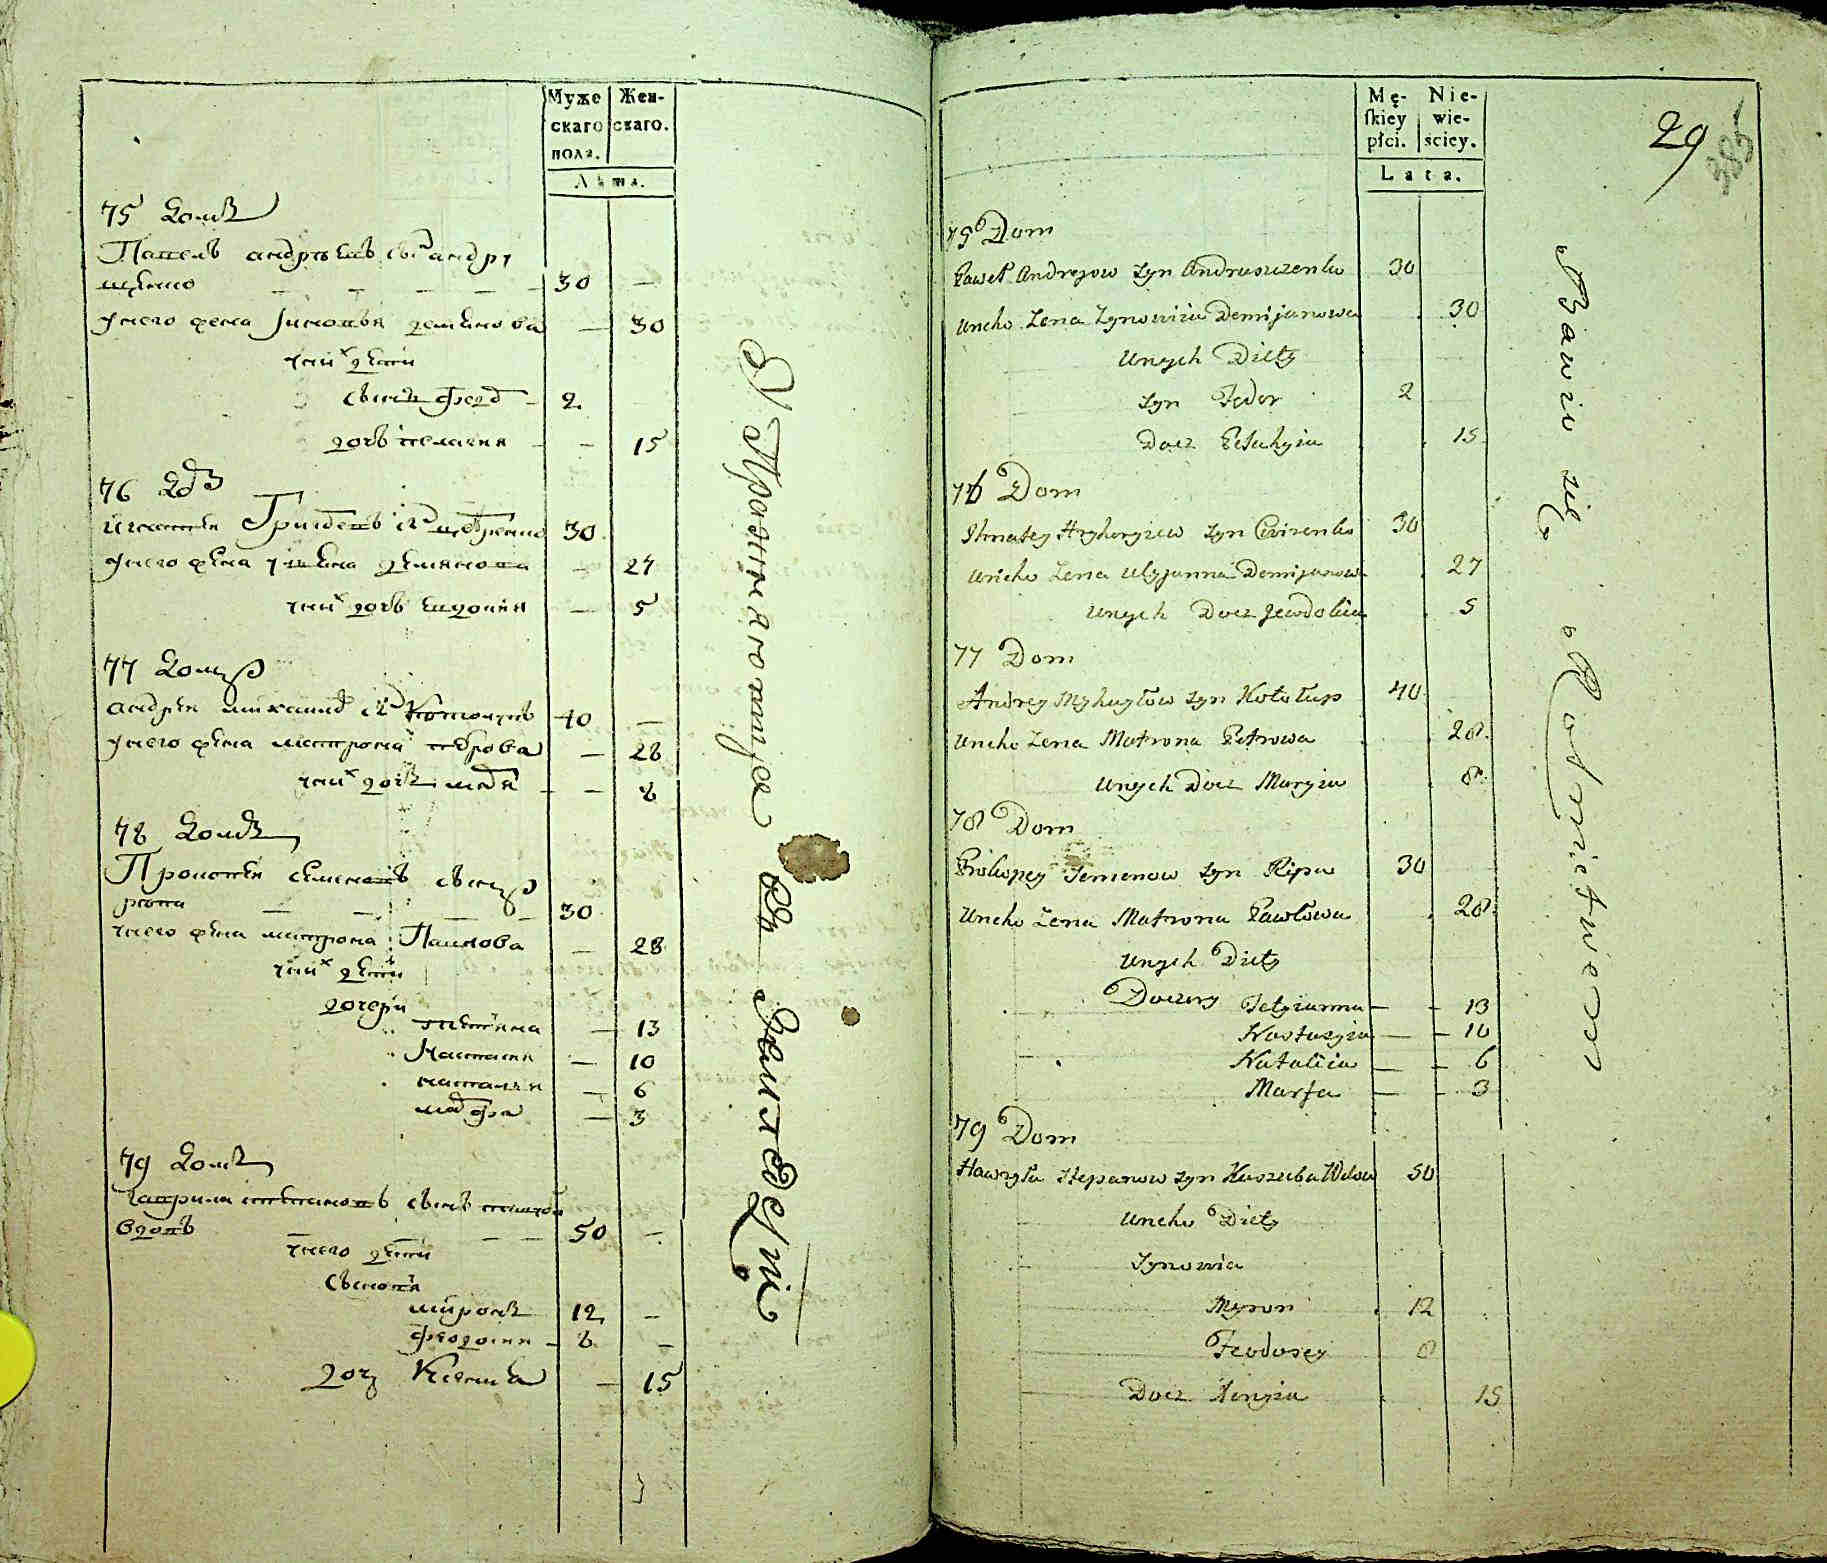 Муже
скаго
полa.
Жен-
скаго.
Лѣта.
75 Домъ
Павелъ андрѣевъ сынъ андру
щенко 30 —
унего жена Зиновья демянова — 30
унихъ дѣти
сынъ Федоръ 2
дочь пелагия — 15
76 Домъ
игнатей Григорьевъ сынъ 30
унего жена улияна демянова — 27
унихъ дочь — 5
77 Домъ
андрей михайловъ сынъ Котолупъ 40 —
унего жена матрона петрова — 28
унихъ дочь марья — 8
78 Домъ
Прокопей семеновъ сынъ
рѣпа 30
унего жена матрона Павлова — 28
унихъ дѣти
дочери
татияна — 13
Настасия — 10
наталия — 6
марфа — 3
79 Домъ
гаврила степановъ сынъ
вдовъ 50 —
унего дѣти
сыновья
миронъ 12 —
феодосия 8 —
дочь Ксения — 15
Упражняются въ Земледѣлiи
Mę-
skiey
płci.
Nie-
wie-
sciey.
Lata.
29
385
75 Dom
Paweł Andrejow syn Andruszczenko 30
Uneho Zena Zynowiia Demijanowa 30
Unych Diety
syn Fedor 2
Docz Pelahyia 15
76 Dom
Ihnatey Hryhoryiew syn 30
Uneho Zena Ulyjanna Demijanowa 27
Unych Docz Jewdokiia 5
77 Dom
Andrey Myhayłow syn Kotołup 40
Uneho Zena Matrona Petrowa 28
Unych Docz Maryia 8
78 Dom
Prokopey Semenow syn Ripa 30
Uneho Zena Matrona Pawłowa 28
Unych Diety
Doczery Tetyianna — — 13
Nastasyia — — 10
Nataliia — — 6
Marfa — — 3
79 Dom
Hawryła Stepanow syn Kaszuba Wdow 50
Uneho Diety
Synowia
Myron 12
Feodosey 8
Docz Xenyia 15
Bawio się Rolnictwem